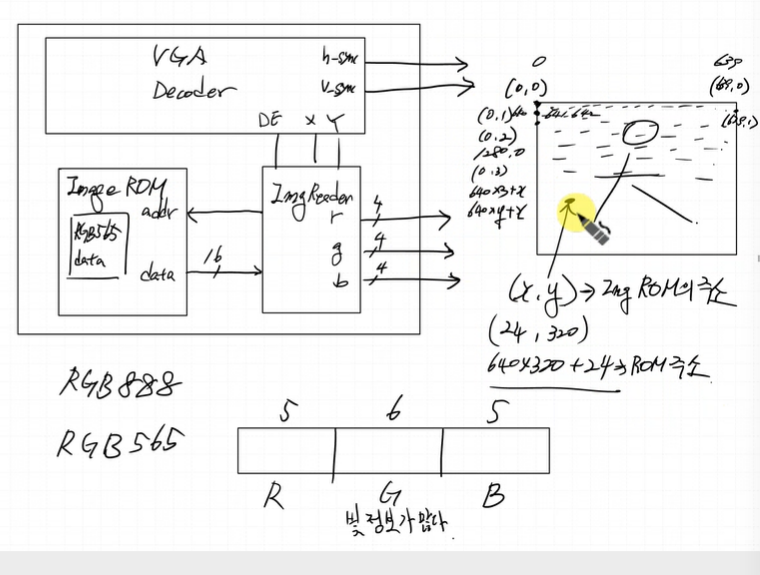 VGA
Decoder
h-sync
v-sync
DE X Y
Image ROM
addr
RGB565
data
data
16
ImgReader
r
g
b
4
4
4
0
639
(0,0)
(639,0)
(0,1)
640
641, 642
(639,1)
(0,2)
1280,0
(0,3)
640×3+x
640×y+x
(x,y)→Img ROM의 주소
(24, 320)
640×320+24→ROM 주소
RGB888
RGB565
5 6 5
R G B
빛 정보가 많다.